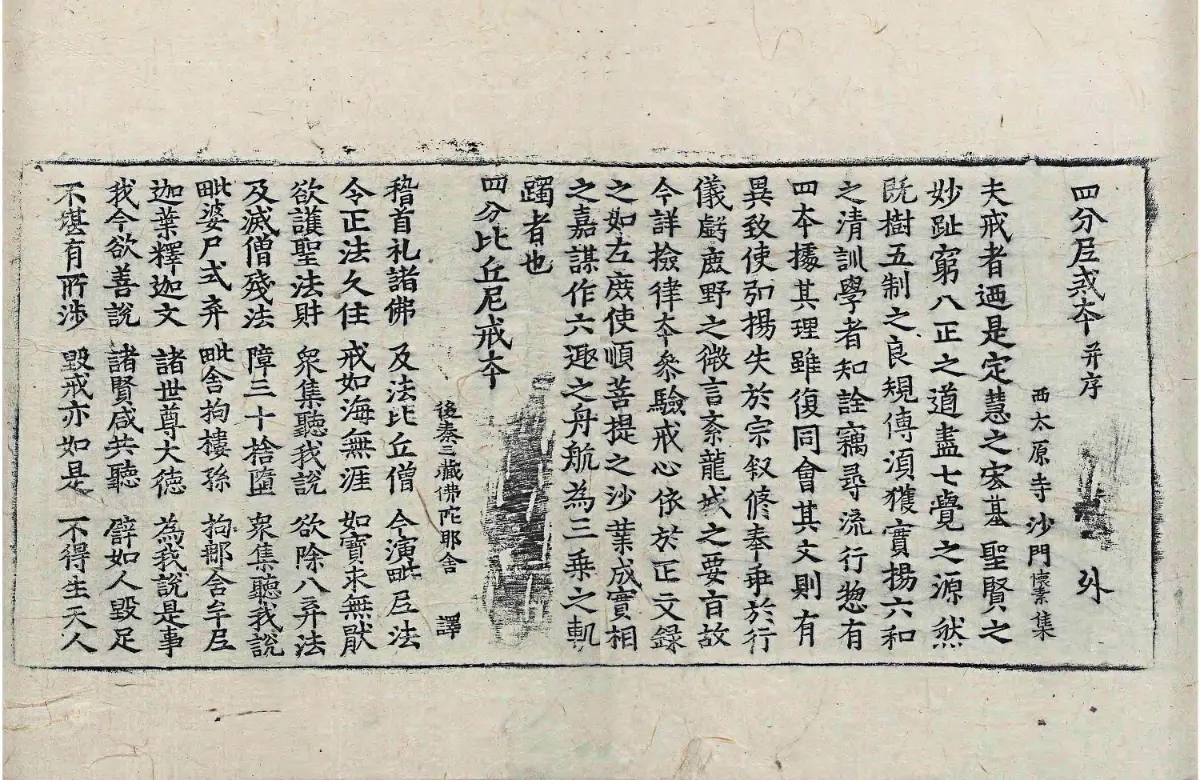 四分尼戒夲 并序 外
西太原寺沙門懷素集
夫戒者迺是定慧之宏基聖賢之
妙趾窮八正之道盡七覺之源然
旣樹五制之良規傳湏獲實揚六和
之清訓學者知詮竊尋流行惣有
四夲據其理雖復同會其文則有
異致使弘揚失於宗叙修奉乖於行
儀虧鹿野之微言紊龍城之要旨故
今詳撿律夲參驗戒心依於正文錄
之如左庶使順菩提之沙葉成實相
之嘉謀作六趣之舟航為三乘之軌
躅者也
四分比丘尼戒夲
後秦三藏佛陀耶舍 譯
稽首礼諸佛 及法比丘僧 今演毗尼法
令正法久住 戒如海無涯 如寶求無猒
欲護聖法財 衆集聽我說 欲除八弃法
及滅僧殘法 障三十捨墮 衆集聽我說
毗婆尸式弃 毗舍拘樓孫 拘那舍牟尼
迦葉釋迦文 諸世尊大徳 為我說是事
我今欲善說 諸賢咸共聽 譬如人毀足
不堪有所涉 毀戒亦如是 不得生天人